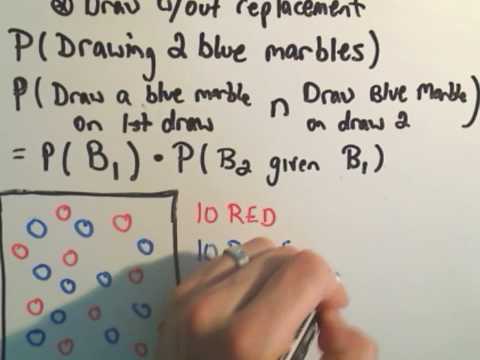 ② Draw w/out replacement
P(Drawing 2 blue marbles)
P(Draw a blue marble on 1st draw ∩ Draw Blue Marble on draw 2)
= P(B₁) · P(B₂ given B₁)
10 RED
10